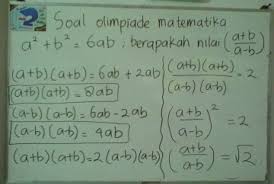 Soal olimpiade matematika
a² + b² = 6ab ; berapakah nilai (a+b / a-b)
(a+b)(a+b) = 6ab + 2ab
(a+b)(a+b) = 8ab
(a-b)(a-b) = 6ab - 2ab
(a-b)(a-b) = 4ab
(a+b)(a+b) = 2(a-b)(a-b)
(a+b)(a+b) / (a-b)(a-b) = 2
(a+b / a-b)² = 2
(a+b / a-b) = √2